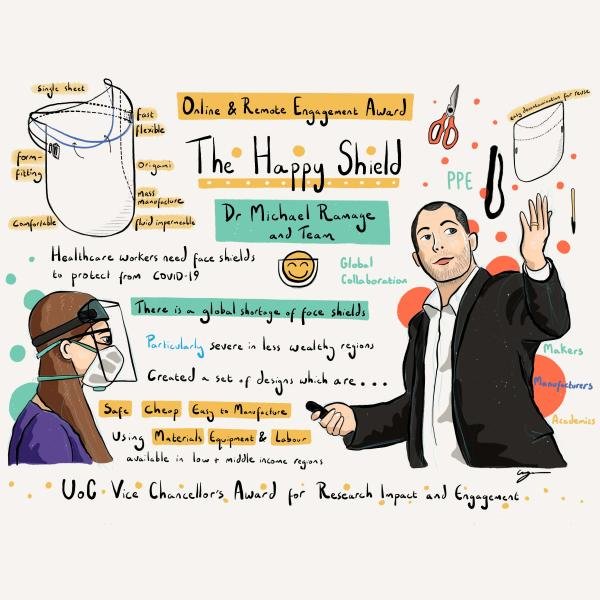 Single sheet
Fast
flexible
form-
fitting
Origami
Mass
Manufacture
Comfortable
fluid impermeable
Online & Remote Engagement Award
The Happy Shield
Dr Michael Ramage
and Team
easy decontamination for reuse
PPE
Healthcare workers need face shields
to protect from COVID-19
Global
Collaboration
There is a global shortage of face shields
Particularly severe in less wealthy regions
Created a set of designs which are...
Safe Cheap Easy to Manufacture
Using Materials Equipment & Labour
available in low + middle income regions
Makers
Manufacturers
Academics
UoC Vice Chancellor's Award for Research Impact and Engagement